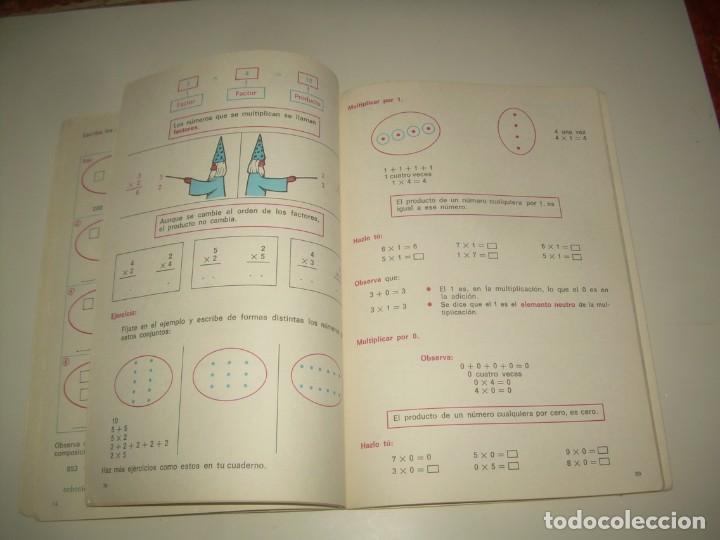 Escribe los
Factor
Factor
Producto
Los números que se multiplican se llaman
factores.
× 3
2
6
3
2
Aunque se cambie el orden de los factores,
el producto no cambia.
4
× 2
2
× 4
5
× 2
2
× 5
4
× 3
Ejercicio:
Fíjate en el ejemplo y escribe de formas distintas los números
estos conjuntos:
10
5 + 5
5 × 2
2 + 2 + 2 + 2 + 2
2 × 5
Haz más ejercicios como estos en tu cuaderno.
Observa
853
Multiplicar por 1.
1 + 1 + 1 + 1
1 cuatro veces
1 × 4 = 4
4 una vez
4 × 1 = 4
El producto de un número cualquiera por 1, es
igual a ese número.
Hazlo tú:
6 × 1 = 6
7 × 1 =
6 × 1 =
5 × 1 =
1 × 7 =
5 × 1 =
Observa que:
3 + 0 = 3
3 × 1 = 3
El 1 es, en la multiplicación, lo que el 0 es en
la adición.
Se dice que el 1 es el elemento neutro de la mul-
tiplicación.
Multiplicar por 0.
Observa:
0 + 0 + 0 + 0 = 0
0 cuatro veces
0 × 4 = 0
4 × 0 = 0
El producto de un número cualquiera por cero, es cero.
Hazlo tú:
7 × 0 = 0
5 × 0 =
9 × 0 =
3 × 0 =
0 × 5 =
8 × 0 =
todocoleccion.net